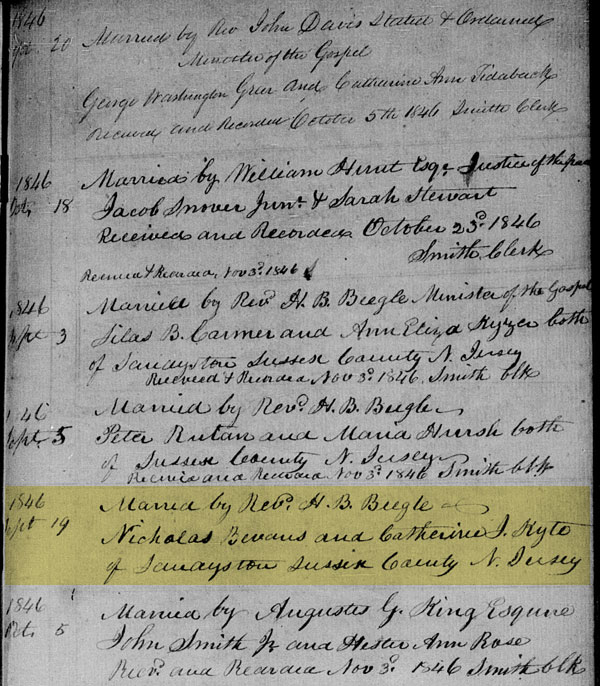 1846
20 Married by Rev John Davis Stated & Ordained
Minister of the Gospel
George Washington Greer and Catharine Ann Tidaback
Received and Recorded October 5th 1846 Smith Clerk
1846
Oct. 18 Married by William Hunt Esqr. Justice of the peace
Jacob Snover Junr. & Sarah Stewart
Received and Recorded October 23d. 1846
Smith Clerk
Received & Recorded, Nov 3d. 1846
1846
Sept 3 Married by Revd. H. B. Beegle Minister of the Gospel
Silas B. Carmer and Ann Eliza Kyzer both
of Sandyston Sussex County N. Jersey
Received & Recorded Nov 3d. 1846 Smith Clk
1846
Sept 5 Married by Revd. H. B. Beegle
Peter Rutan and Maria Hursh both
of Sussex County N. Jersey
Received and Recorded Nov 3d. 1846 Smith Clk
1846
Sept 19 Married by Revd. H. B. Beegle
Nicholas Bevans and Catherine J. Kyte
of Sandyston Sussex County N. Jersey
1846
Oct. 5 Married by Augustus G. King Esquire
John Smith Jr and Hester Ann Rose
Recd. and Recorded Nov 3d. 1846 Smith Clk